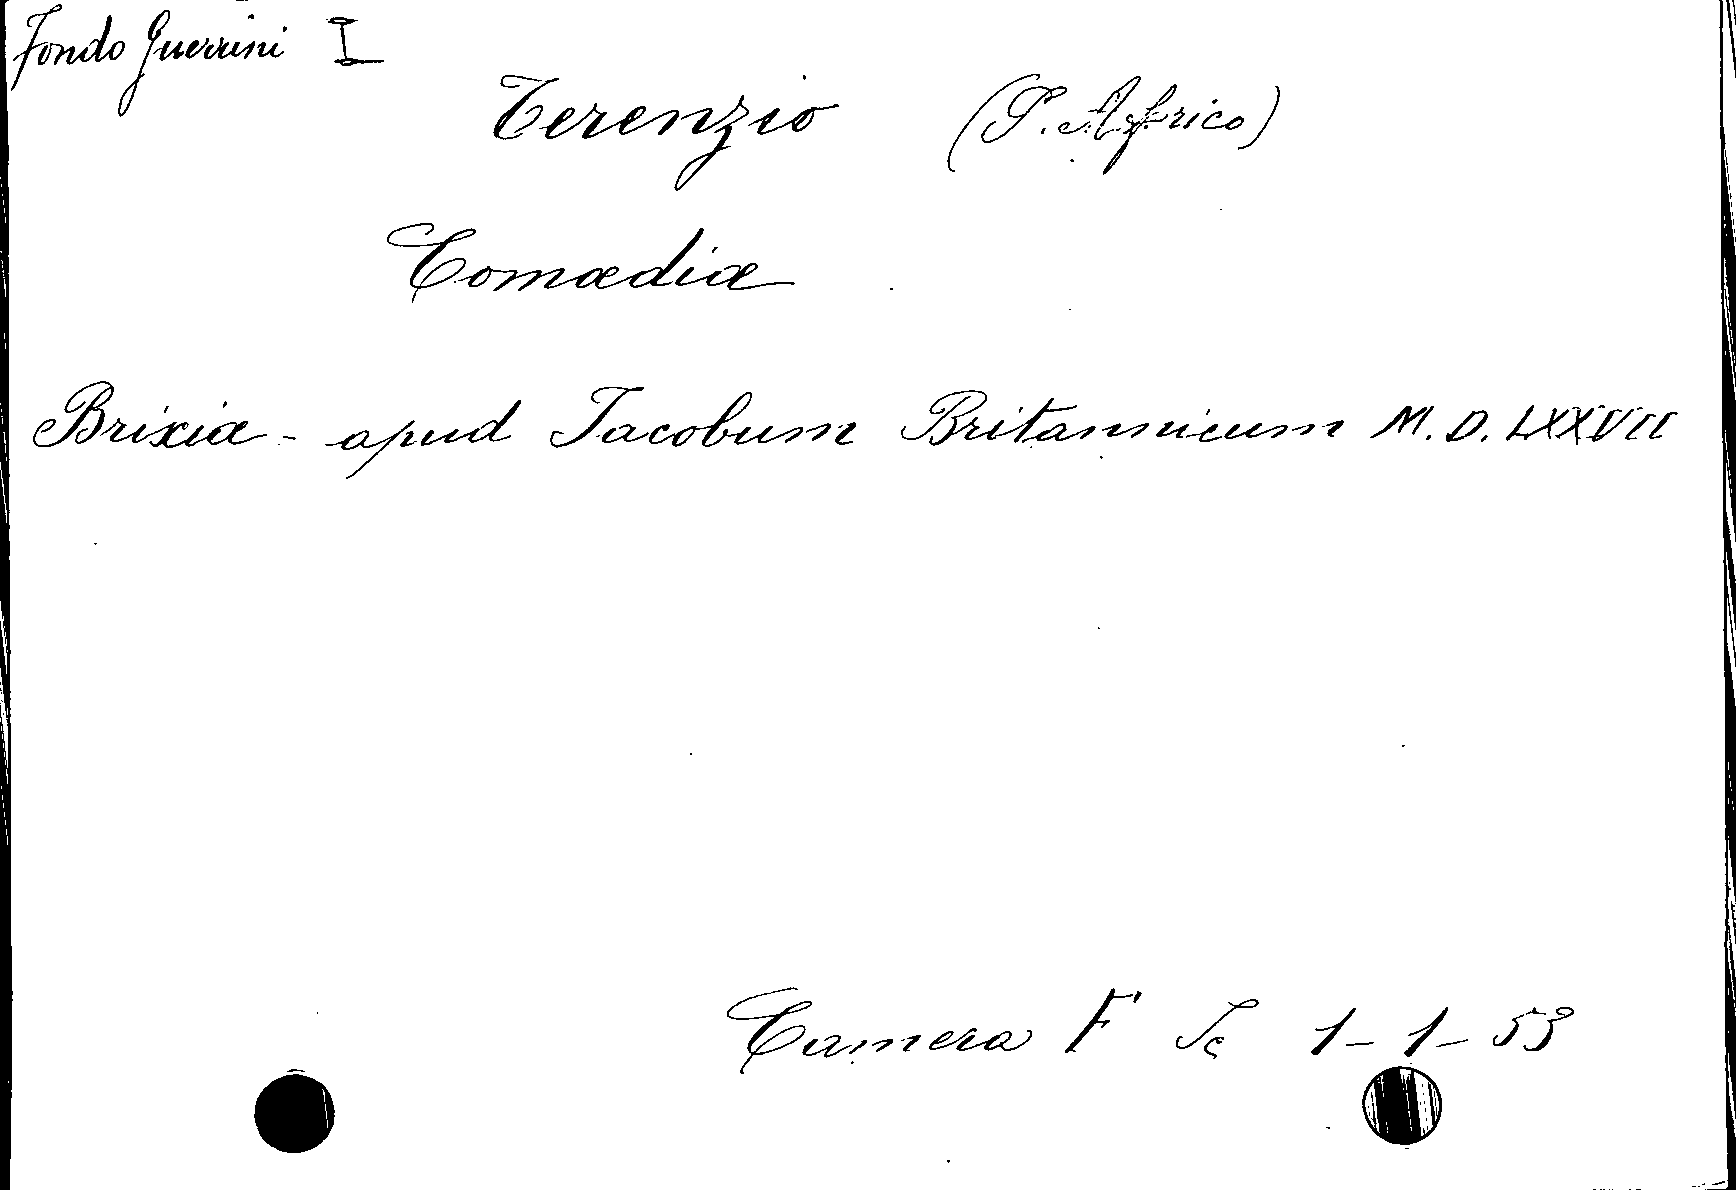 Fondo Guerrini I
Terenzio (P. Africo)
Comœdiæ
Brixiæ - apud Jacobum Britannicum M. D. LXXVII
Camera F Sc 1-1-53